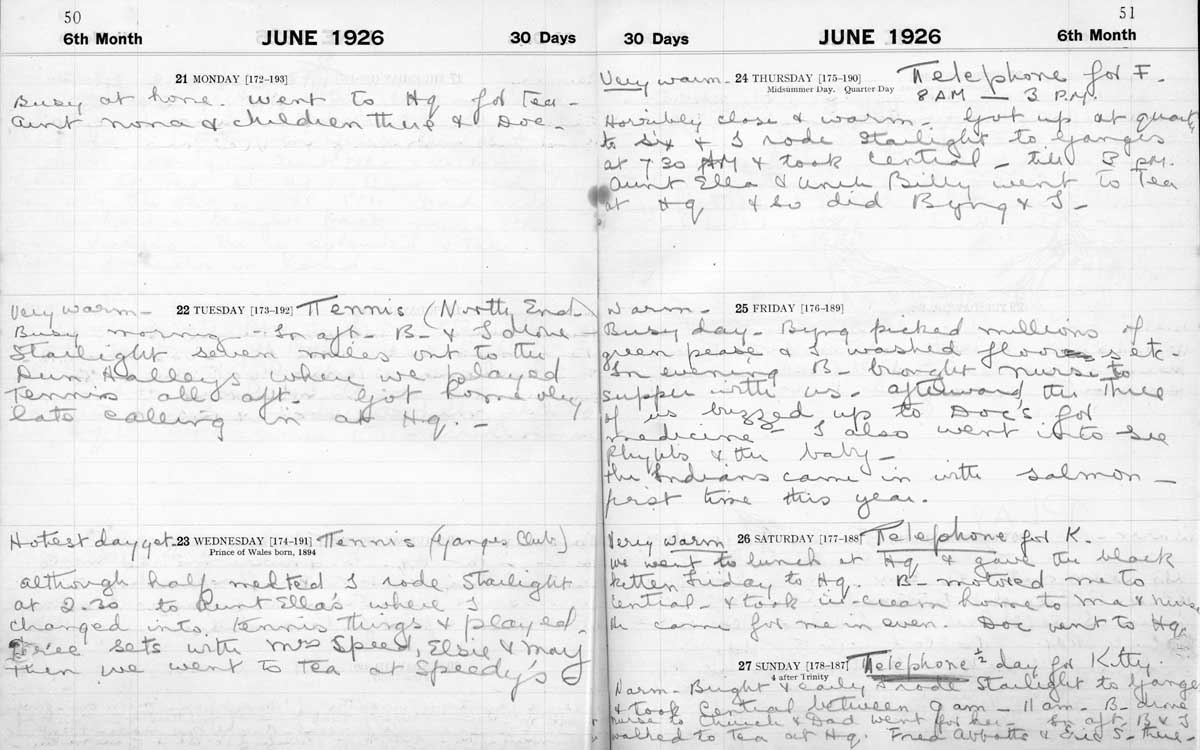 50
6th Month JUNE 1926 30 Days
21 MONDAY [172-193]
Busy at home. Went to Hq for Tea -
Aunt Nona & children there & Doc -
Very warm - 22 TUESDAY [173-192] Tennis (North End)
Busy morning - In aft - B - & I drove
Starlight seven miles out to the
Halley's where we played
Tennis all aft - Got home very
late calling in at Hq. -
Hottest day yet - 23 WEDNESDAY [174-191] Tennis (Ganges Club)
Prince of Wales born, 1894
Although half melted I rode Starlight
at 2.30 to Aunt Ella's where I
changed into tennis things & played
three sets with Mrs Speed, Elsie & May
Then we went to tea at Speedy's
51
30 Days JUNE 1926 6th Month
Very warm - 24 THURSDAY [175-190] Telephone for F.
Midsummer Day. Quarter Day 8 AM — 3 P.M.
Horribly close & warm - Got up at quart
to six & I rode Starlight to Ganges
at 7 30 AM & took Central - till 3 PM.
Aunt Ella & Uncle Billy went to Tea
at Hq & so did Byng & I -
Warm - 25 FRIDAY [176-189]
Busy day - Byng picked millions of
green pease & I washed floors etc -
In evening B - brought nurse to
supper with us - afterward the three
of us buzzed up to Doc's for
medicine - I also went in to see
Phyllis & the baby -
The Indians came in with salmon -
first time this year.
Very warm 26 SATURDAY [177-188] Telephone for K.
We went to lunch at Hq & gave the black
kitten Friday to Hq. B - motored me to
Central - & took ice-cream home to Ma & nurse
He came for me in even. Doc went to Hq.
27 SUNDAY [178-187] Telephone ½ day for Kitty
4 after Trinity
Warm - Bright & early I rode Starlight to Ganges
& took Central between 9 am - 11 am - B - drove
nurse to Church & Dad went for her - In aft - B & I
walked to tea at Hq. Fred Abbotts & Eric S - there -